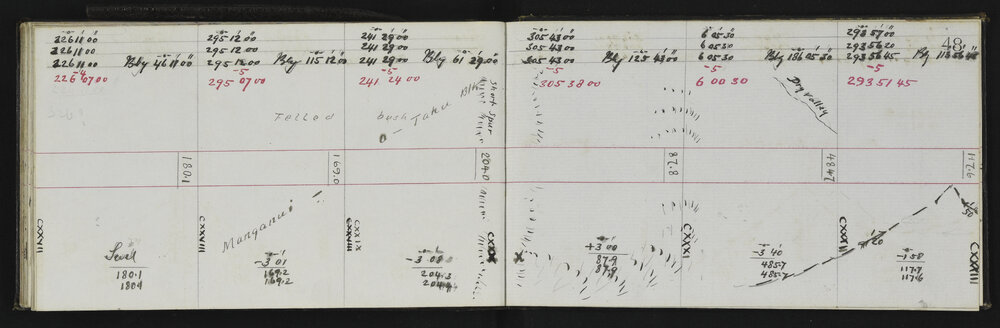 226 11 00
226 11 00
226 11 00 Blg 46 11 00
-4
226 07 00
295 12 00
295 12 00
295 12 00 Blg 115 12 00
-5
295 07 00
241 29 00
241 29 00
241 29 00 Blg 61 29 00
-5
241 24 00
305 43 00
305 43 00
305 43 00 Blg 125 43 00
-5
305 38 00
6 05 30
6 05 30
6 05 30 Blg 186 05 30
-5
6 00 30
293 57 00
293 56 20
293 56 45 Blg
-5
293 51 45
48
Felled bush Taku Blk
short spur
Dry valley
180.1
169.0
204.0
87.8
484.7
117.6
CXXVII
Level
180.1
180.1
CXXVIII
Manganui
-3 01
169.2
169.2
CXXIX
CXXVIII
-3 08
204.3
+3 00
87.9
87.9
CXXXI
-3 40
485.7
485.7
20
-1 58
117.7
117.6
CXXXIII